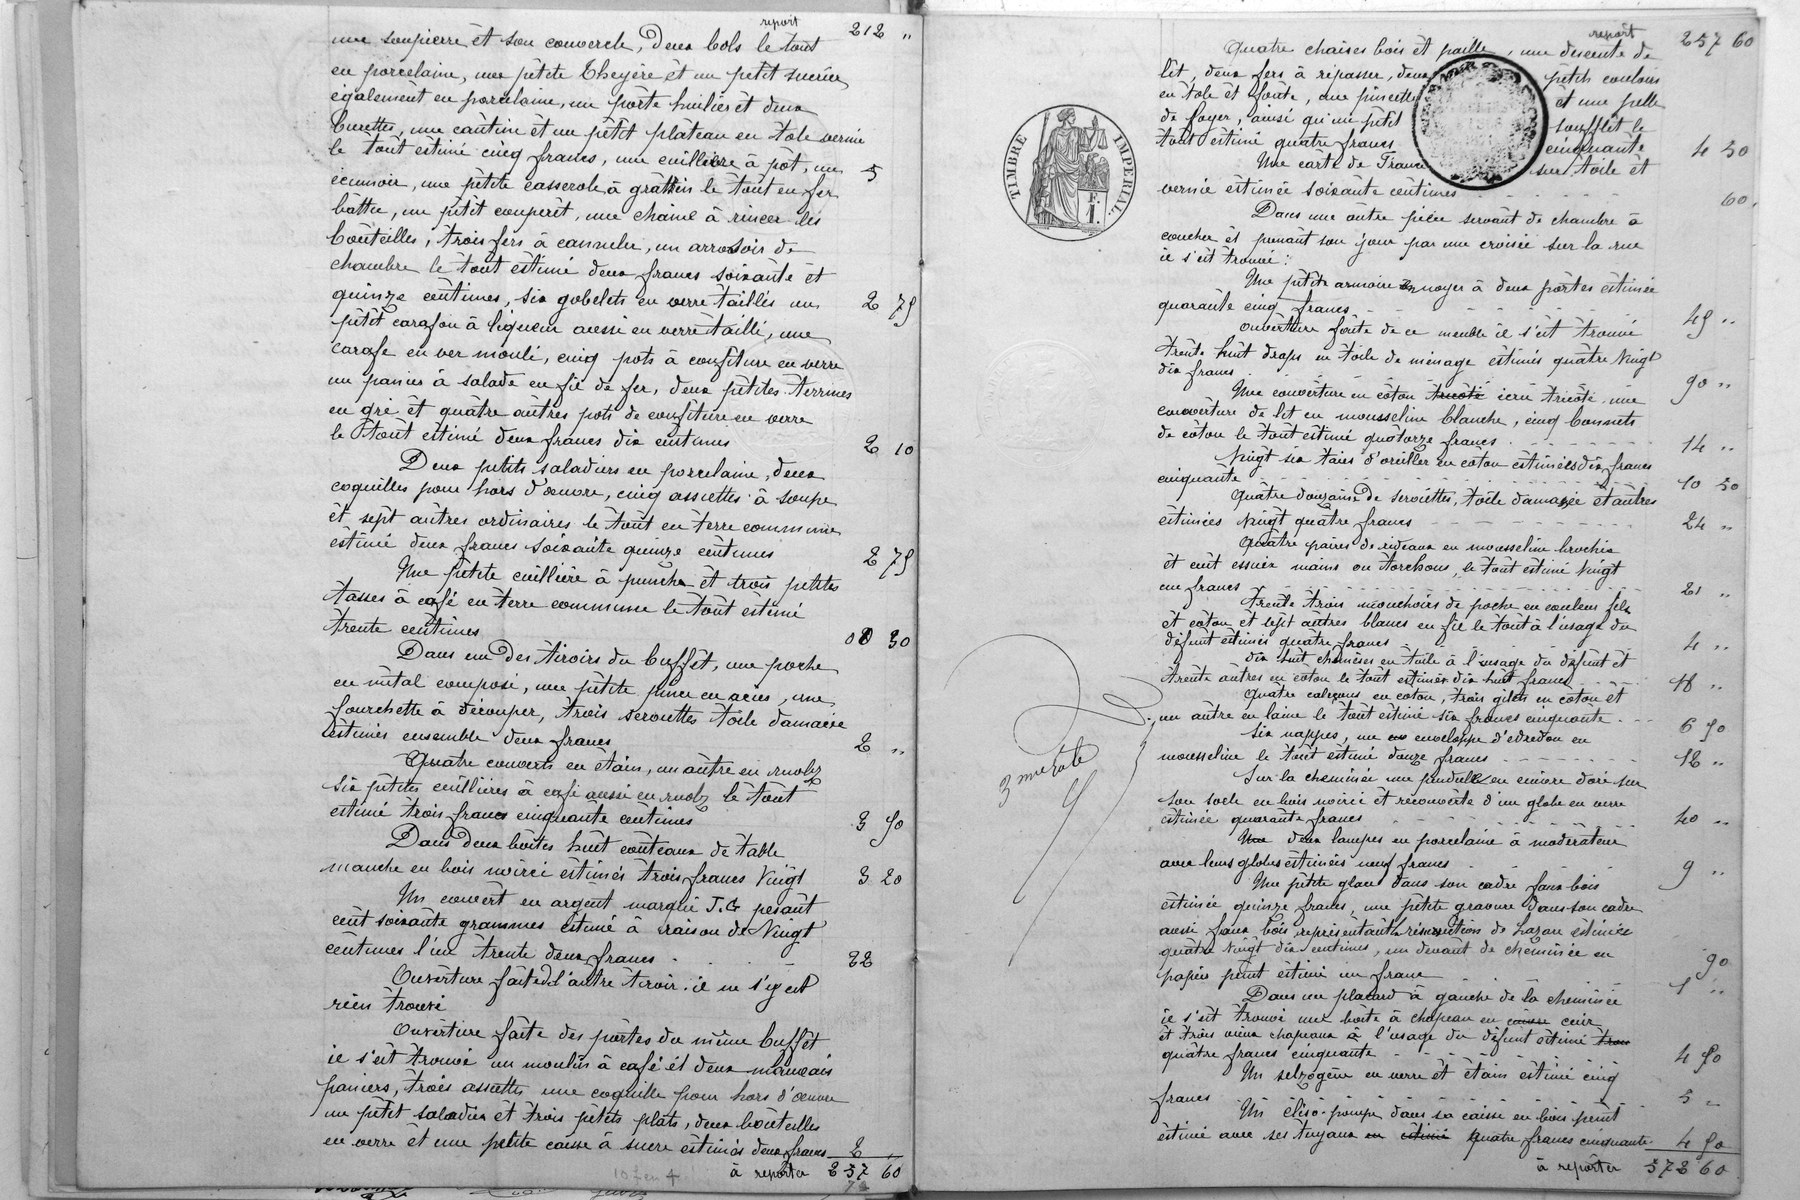 report 212 "
une soupière et son couvercle, Deux bols le tout
en porcelaine, une petite Theyère et un petit sucrier
également en porcelaine, un porte huilier et deux
burettes, une cantine et un petit plateau en tole vernie
le tout estimé cinq francs, une cuillière à pôt, un 5
écumoir, une petite casserole à gratin le tout en fer
battu, un petit couperet, une chaine à rincer les
bouteilles, trois fers à canneler, un arrosoir de
chambre le tout estimé deux francs soixante et
quinze centimes, six gobelets en verre taillés un 2 75
petit carafon à liqueur aussi en verre taillé, une
carafe en ver moulé, cinq pots à confiture en verre
un panier à salade en fil de fer, deux petites terrines
en gré et quatre autres pots de confiture en verre
le tout estimé deux francs dix centimes 2 10
Deux petits saladiers en porcelaine, deux
coquilles pour hors d'œuvre, cinq assiettes à soupe
et sept autres ordinaires le tout en terre commune
estimé deux francs soixante quinze centimes 2 75
Une petite cuillière à punch et trois petites
tasses à café en terre commune le tout estimé
trente centimes 00 30
Dans un des tiroirs du buffet, une poche
en métal composé, une petite pince en acier, une
fourchette à découper, trois serviettes toile damacée
estimés ensemble deux francs 2 "
Quatre couverts en étain, un autre en ruolz
six petites cuillières à café aussi en ruolz le tout
estimé trois francs cinquante centimes 3 50
Dans deux boites huit couteaux de table
manche en bois noirci estimés trois francs vingt 3 20
Un couvert en argent marqué J.G pesant
cent soixante grammes estimé à raison de vingt
centimes l'un trente deux francs 32
Ouverture faite de l'autre tiroir il ne s'y est
rien trouvé
Ouverture faite des portes du même buffet
il s'est trouvé un moulin à café et deux mauvais
paniers, trois assiettes une coquille pour hors d'œuvre
un petit saladier et trois petits plats, deux bouteilles
en verre et une petite caisse à sucre estimés deux francs 2 "
à reporter 257 60
report 257 60
Quatre chaises bois et paille, une descente de
lit, deux fers à repasser, deux petits couloirs
en tole et fonte, une pincette et une pelle
de foyer, ainsi qu'un petit soufflet le
tout estimé quatre francs cinquante 4 50
Une carte de France sur toile et
vernie estimée soixante centimes 60
TIMBRE IMPERIAL.
F.
1.
Dans une autre pièce servant de chambre à
coucher et prenant son jour par une croisée sur la rue
il s'est trouvé:
Une petite armoire en noyer à deux portes estimée
quarante cinq francs 45 "
Ouverture faite de ce meuble il s'est trouvé
trente huit draps en toile de ménage estimés quatre vingt
dix francs 90 "
Une couverture en coton tricoté écru tricoté, une
couverture de lit en mousseline blanche, cinq bonnets
de coton le tout estimé quatorze francs 14 "
Vingt six taies d'oreiller en coton estimées dix francs
cinquante 10 50
Quatre douzaine de serviettes, toile damassée et autres
estimées vingt quatre francs 24 "
Quatre paires de rideaux en mousseline brochée
et cent essuie mains ou torchons, le tout estimé vingt
un francs 21 "
trente trois mouchoirs de poche en couleur fil
et coton et sept autres blancs en fil le tout à l'usage du
défunt estimés quatre francs 4 "
dix huit chemises en toile à l'usage du défunt et
trente autres en coton le tout estimés dix huit francs 18 "
Quatre caleçons en coton, trois gilets en coton et
un autre en laine le tout estimé six francs cinquante 6 50
Six nappes, une enveloppe d'edredon en
mousseline le tout estimé douze francs 12 "
3 me role
Sur la cheminée une pendule en cuivre doré sur
son socle en bois noirci et recouverte d'un globe en verre
estimée quarante francs 40 "
Une deux lampes en porcelaine à modérateur
avec leurs globes estimées neuf francs 9 "
Une petite glace dans son cadre faux bois
estimée quinze francs, une petite gravure dans son cadre
aussi faux bois représentant la résurrection de Lazare estimée
quatre vingt dix centimes, un devant de cheminée en 90
papier peint estimé un franc 1 "
Dans un placard à gauche de la cheminée
il s'est trouvé une boite à chapeau en caisse cuir
et trois vieux chapeaux à l'usage du défunt estimé trois
quatre francs cinquante 4 50
Un selzogène en verre et étain estimé cinq
francs 5 "
Un cliso-pompe dans sa caisse en bois peint
estimé avec ses tuyaux en estimé quatre francs cinquante 4 50
à reporter 572 60